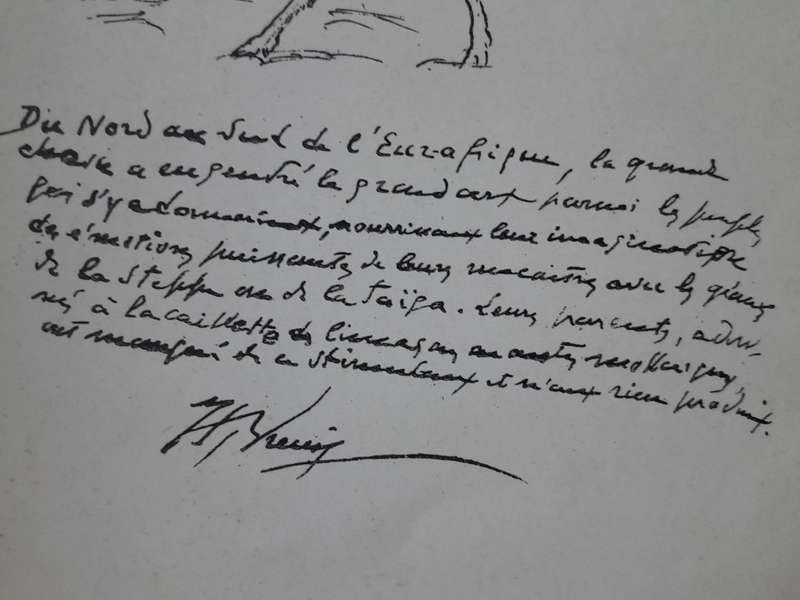 Du Nord au Sud de l'Eurafrique, la grande
chasse a engendré le grand art parmi les peuples
qui s'y adonnaient, nourrissant leur imagination
des émotions puissantes de leurs rencontres avec les géants
de la steppe ou de la taïga. Leurs parents, adon-
nés à la cueillette des limaçons ou autres mollusques,
ont manqué de ce stimulant et n'ont rien produit.